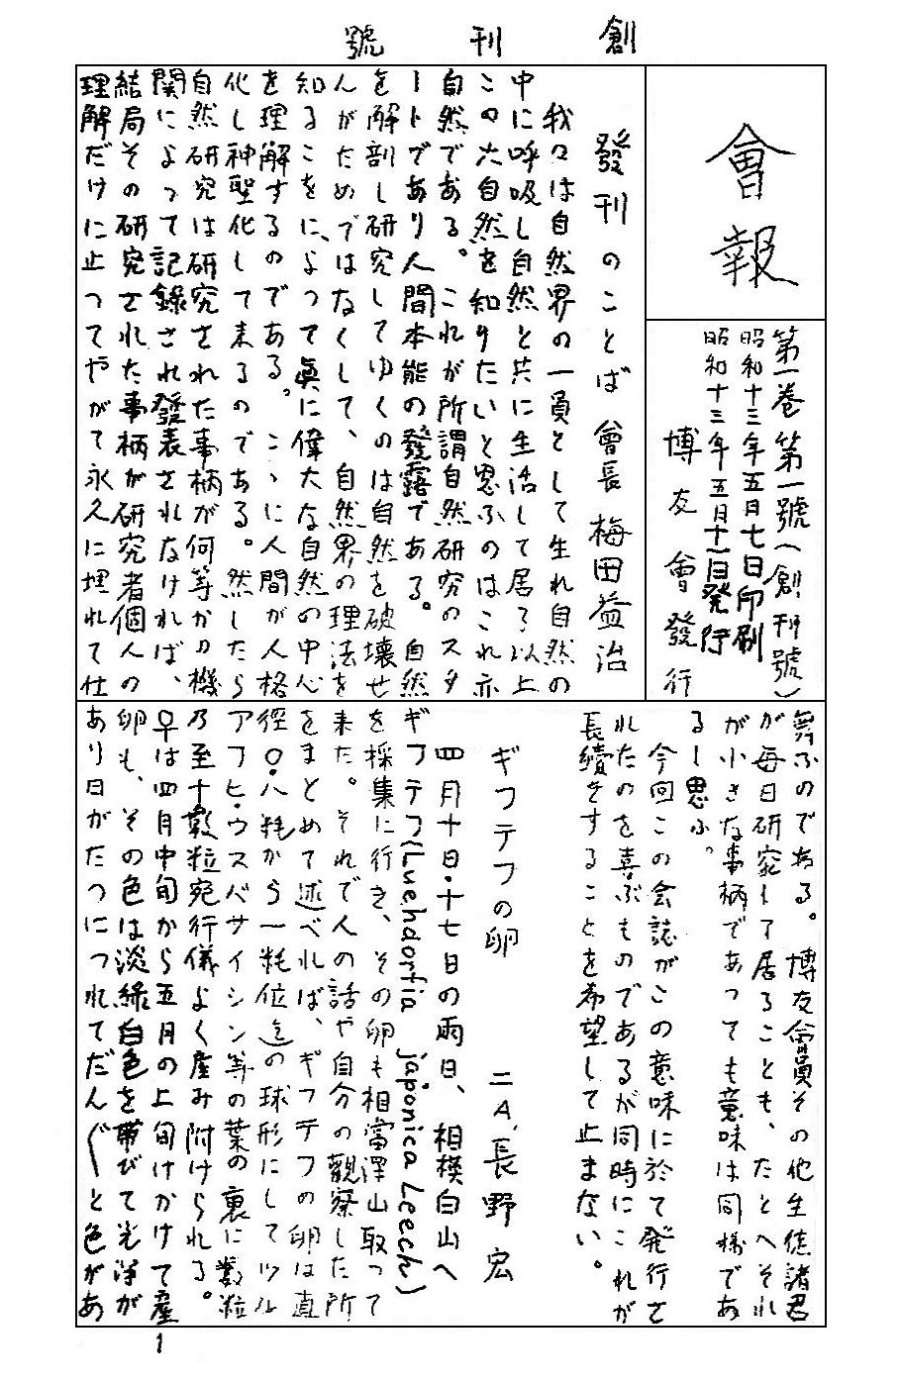 創刊號
會報
第一巻第一號（創刊號）
昭和十三年五月七日印刷
昭和十三年五月十一日発行
博友會發行
發刊のことば 會長 梅田益治
我々は自然界の一員として生れ自然の
中に呼吸し自然と共に生活して居る以上
この大自然を知りたいと思ふのはこれ亦
自然である。これが所謂自然研究のスタ
ートであり人間本能の發露である。自然
を解剖し研究してゆくのは自然を破壊せ
んがためではなくして、自然界の理法を
知るこをに、よつて眞に偉大な自然の中心
を理解するのである。こゝに人間が人格
化し神聖化して来るのである。然したら
自然研究は研究された事柄が何等かの機
関によつて記錄され發表されなければ、
結局その研究された事柄が研究者個人の
理解だけに止つてやがて永久に埋れて仕
舞ふのである。博友會員その他生徒諸君
が毎日研究して居ることも、たとへそれ
が小さな事柄であつても意味は同様であ
るし思ふ。
今回この会誌がこの意味に於て発行さ
れたのを喜ぶものであるが同時にこれが
長續をすることを希望して止まない。
ギフテフの卵 二A、長野宏
四月十日・十七日の兩日、相模白山へ
ギフテフ(Luehdorfia japonica Leech)
を採集に行き、その卵も相當澤山取つて
来た。それで人の話や自分の觀察した所
をまとめて述べれば、ギフテフの卵は直
径〇・八粍から一粍位迄の球形にしてツル
アフヒ・ウスバサイシン等の葉の裏に數粒
乃至十數粒宛行儀よく産み附けられる。
♀は四月中旬から五月の上旬けかけて産
卵も、その色は淡綠白色を帶びて光澤が
あり日がたつにつれてだん〴〵と色があ
1